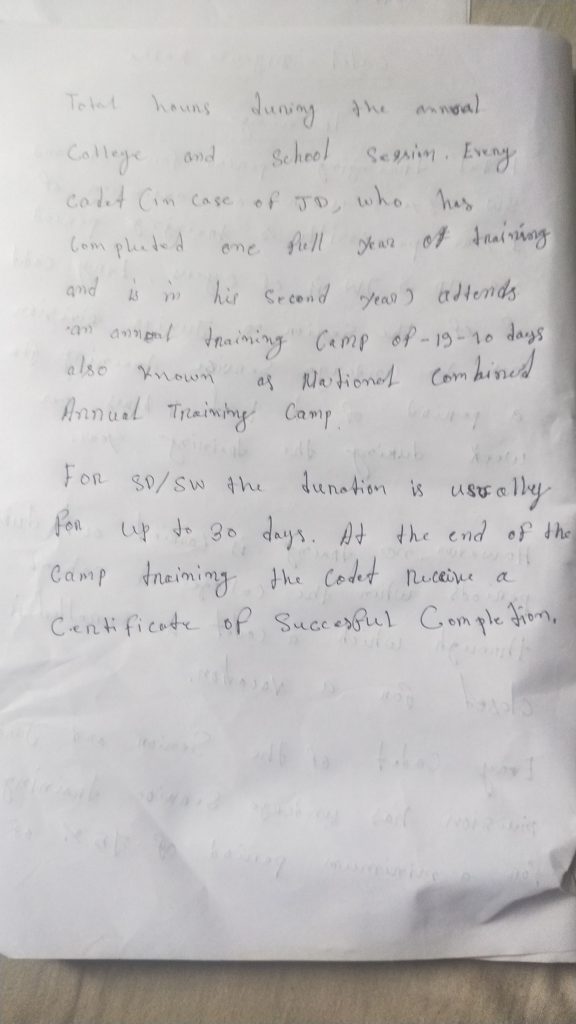 Total hours during the annual
College and School Session. Every
cadet (in case of JD, who has
Completed one full year of training
and is in his second year) attends
an annual training Camp of -19-10 days
also known as National Combined
Annual Training Camp.
For SD/SW the duration is usually
for up to 30 days. At the end of the
Camp training the Cadet receive a
Certificate of Succesful Completion.